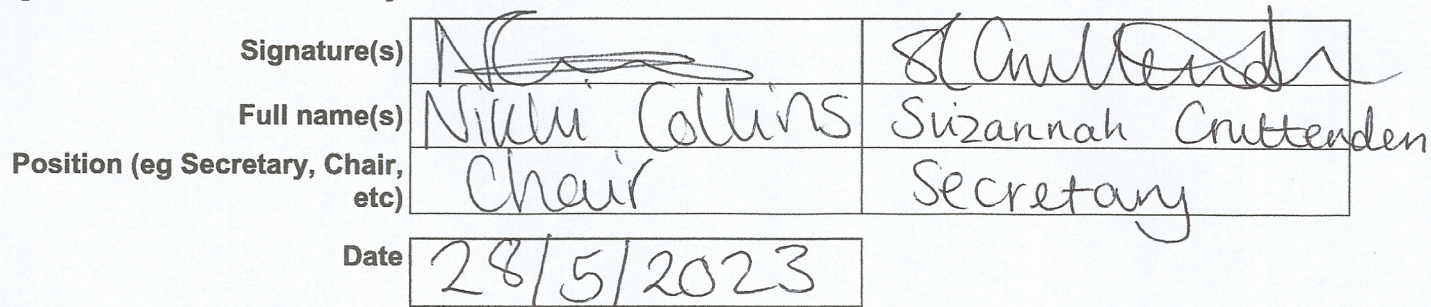 Signature(s) SCruttenden
Full name(s) Nikki Collins Suzannah Cruttenden
Position (eg Secretary, Chair, Chair Secretary
etc)
Date 28/5/2023